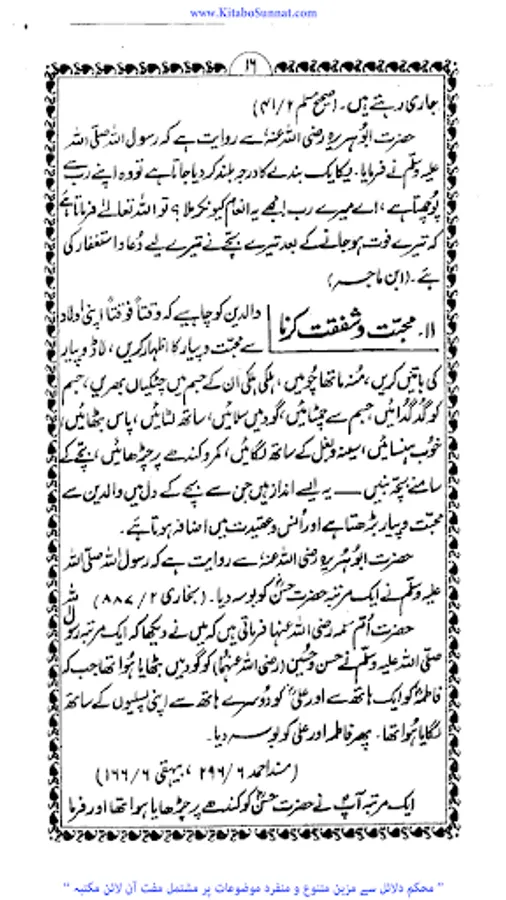 www.KitaboSunnat.com
۱۶
جاری رہتے ہیں۔ (صحیح مسلم ۲/۴۱)
حضرت ابوہریرہ رضی اللہ عنہ سے روایت ہے کہ رسول اللہ صلی اللہ
علیہ وسلم نے فرمایا۔ یکایک بندے کا درجہ بلند کر دیا جاتا ہے تو وہ اپنے رب سے
پوچھتا ہے، اے میرے رب! مجھے یہ انعام کیونکر ملا؟ تو اللہ تعالیٰ فرماتا ہے
کہ تیرے فوت ہو جانے کے بعد تیرے بچے نے تیرے لیے دُعا و استغفار کی
ہے۔ (ابن ماجہ)
۱۱۔ محبت و شفقت کرنا
والدین کو چاہیے کہ وقتاً فوقتاً اپنی اولاد
سے محبت و پیار کا اظہار کریں، لاڈ و پیار
کی باتیں کریں، مُنہ ماتھا چُومیں، ہلکی ہلکی ان کے جسم میں چٹکیاں بھریں، جسم
کو گُدگُدائیں، جسم سے چمٹائیں، گود میں سلائیں، ساتھ لٹائیں، پاس بٹھائیں،
خوب ہنسائیں، سینہ و بغل کے ساتھ لگائیں، کمر و کندھے پر چڑھائیں، بچے کے
سامنے بچہ بنیں —— یہ ایسے انداز ہیں جن سے بچے کے دل میں والدین سے
محبت و پیار بڑھتا ہے اور اُنس و عقیدت میں اضافہ ہوتا ہے۔
حضرت ابوہریرہ رضی اللہ عنہ سے روایت ہے کہ رسول اللہ صلی اللہ
علیہ وسلم نے ایک مرتبہ حضرت حسنؓ کو بوسہ دیا۔ (بخاری ۲/۸۸۷)
حضرت اُم سلمہ رضی اللہ عنہا فرماتی ہیں کہ میں نے دیکھا کہ ایک مرتبہ رسول اللہ
صلی اللہ علیہ وسلم نے حسن و حسین (رضی اللہ عنہما) کو گود میں بٹھایا ہوا تھا جب کہ
فاطمہؓ کو ایک ہاتھ سے اور علیؓ کو دُوسرے ہاتھ سے اپنی پسلیوں کے ساتھ
لگایا ہوا تھا۔ پھر فاطمہ اور علی کو بوسہ دیا۔
(مسند احمد ۶/۲۹۶، بیہقی ۶/۱۶۶)
ایک مرتبہ آپؐ نے حضرت حسنؓ کو کندھے پر چڑھایا ہوا تھا اور فرما
"محکم دلائل سے مزین متنوع و منفرد موضوعات پر مشتمل مفت آن لائن مکتبہ"